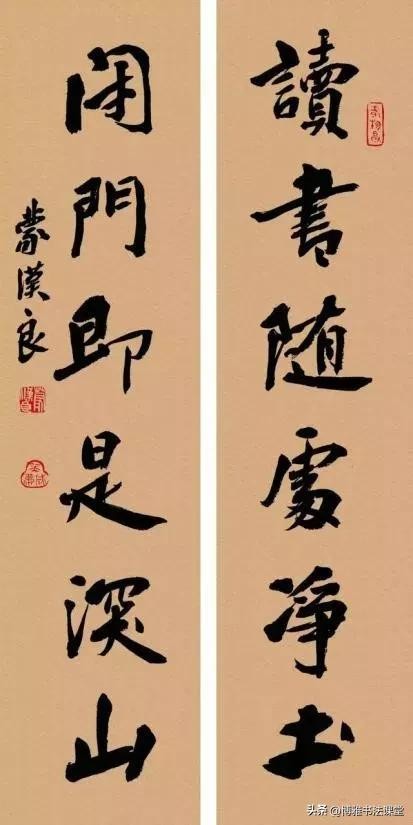 讀書随處淨土
閉門即是深山
蒙漢良
头条 @博雅书法课堂